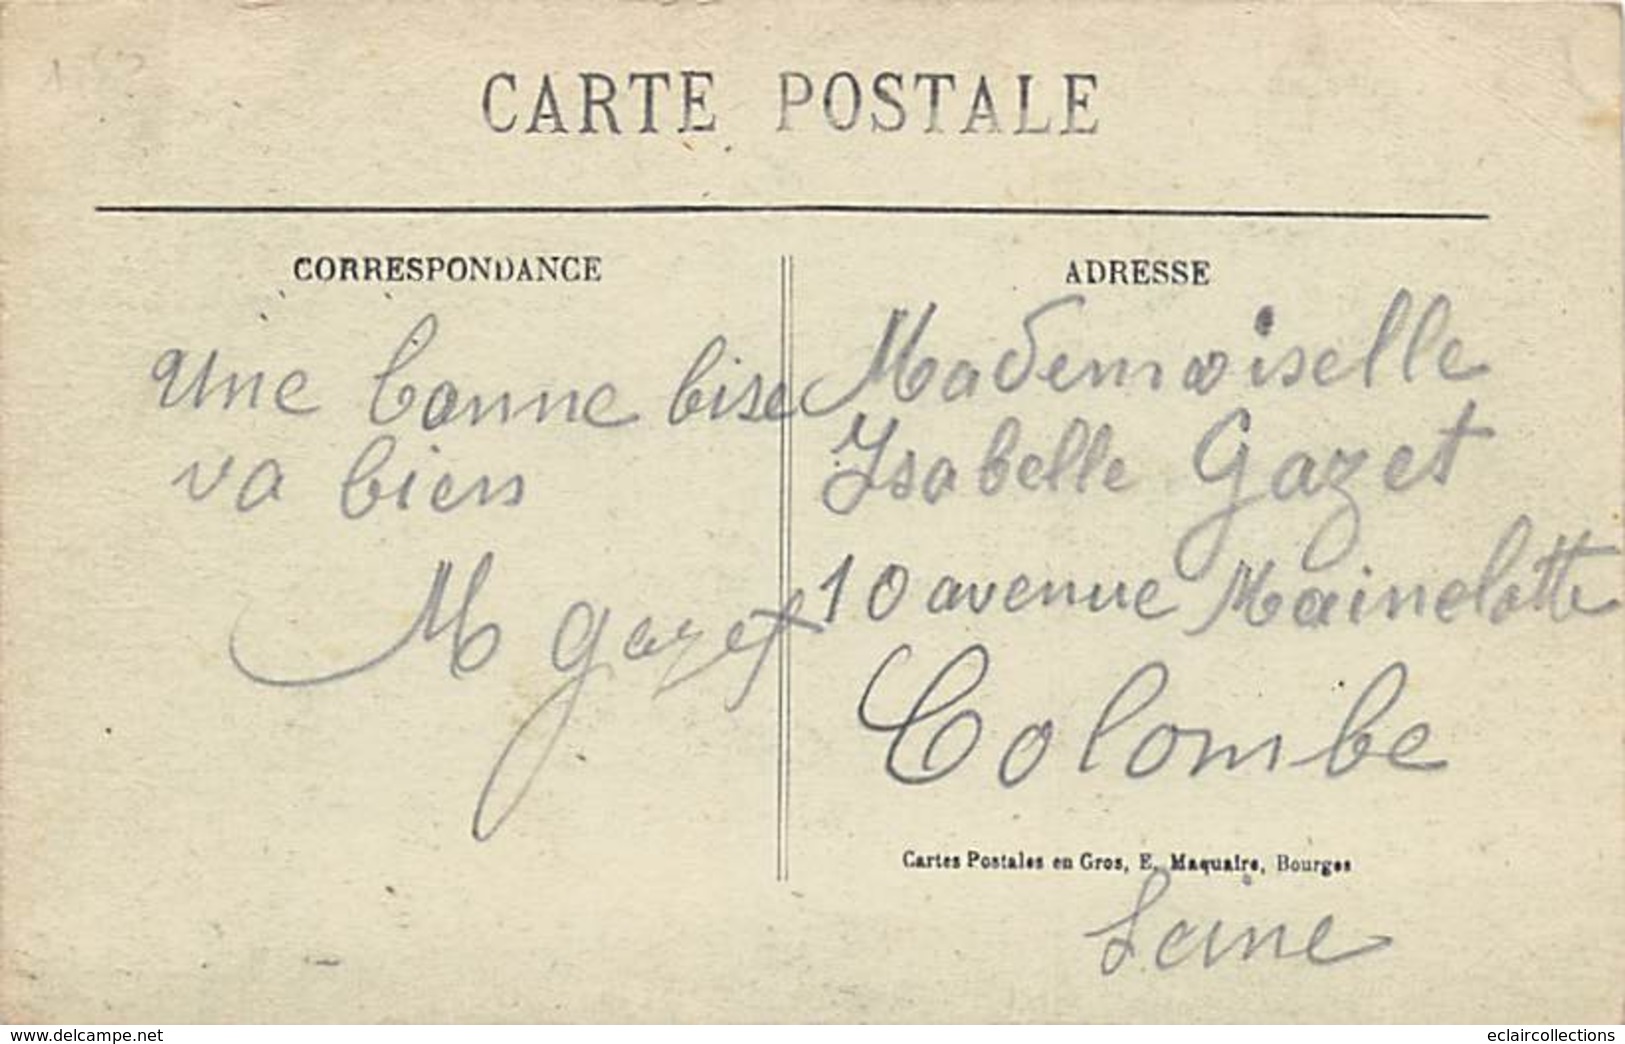 CARTE POSTALE
CORRESPONDANCE
Une bonne bise
va bien
M gazet
ADRESSE
Mademoiselle
Isabelle Gazet
10 avenue Mainelotte
Colombe
Cartes Postales en Gros, E. Maquaire, Bourges
Seine
www.delcampe.net
eclaircollections